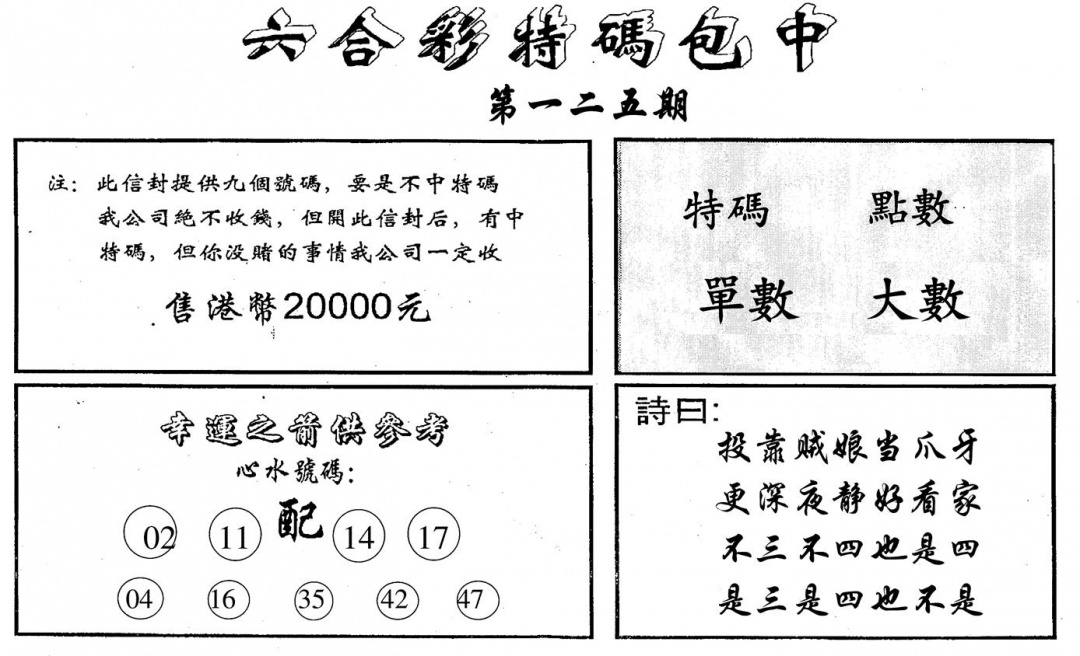 六合彩特碼包中
第一二五期
注: 此信封提供九個號碼, 要是不中特碼
我公司絕不收錢, 但開此信封后, 有中
特碼, 但你没賭的事情我公司一定收
售港幣20000元
特碼 點數
單數 大數
幸運之箭供參考
心水號碼:
02 11 配 14 17
04 16 35 42 47
詩曰:
投靠贼娘当爪牙
更深夜静好看家
不三不四也是四
是三是四也不是